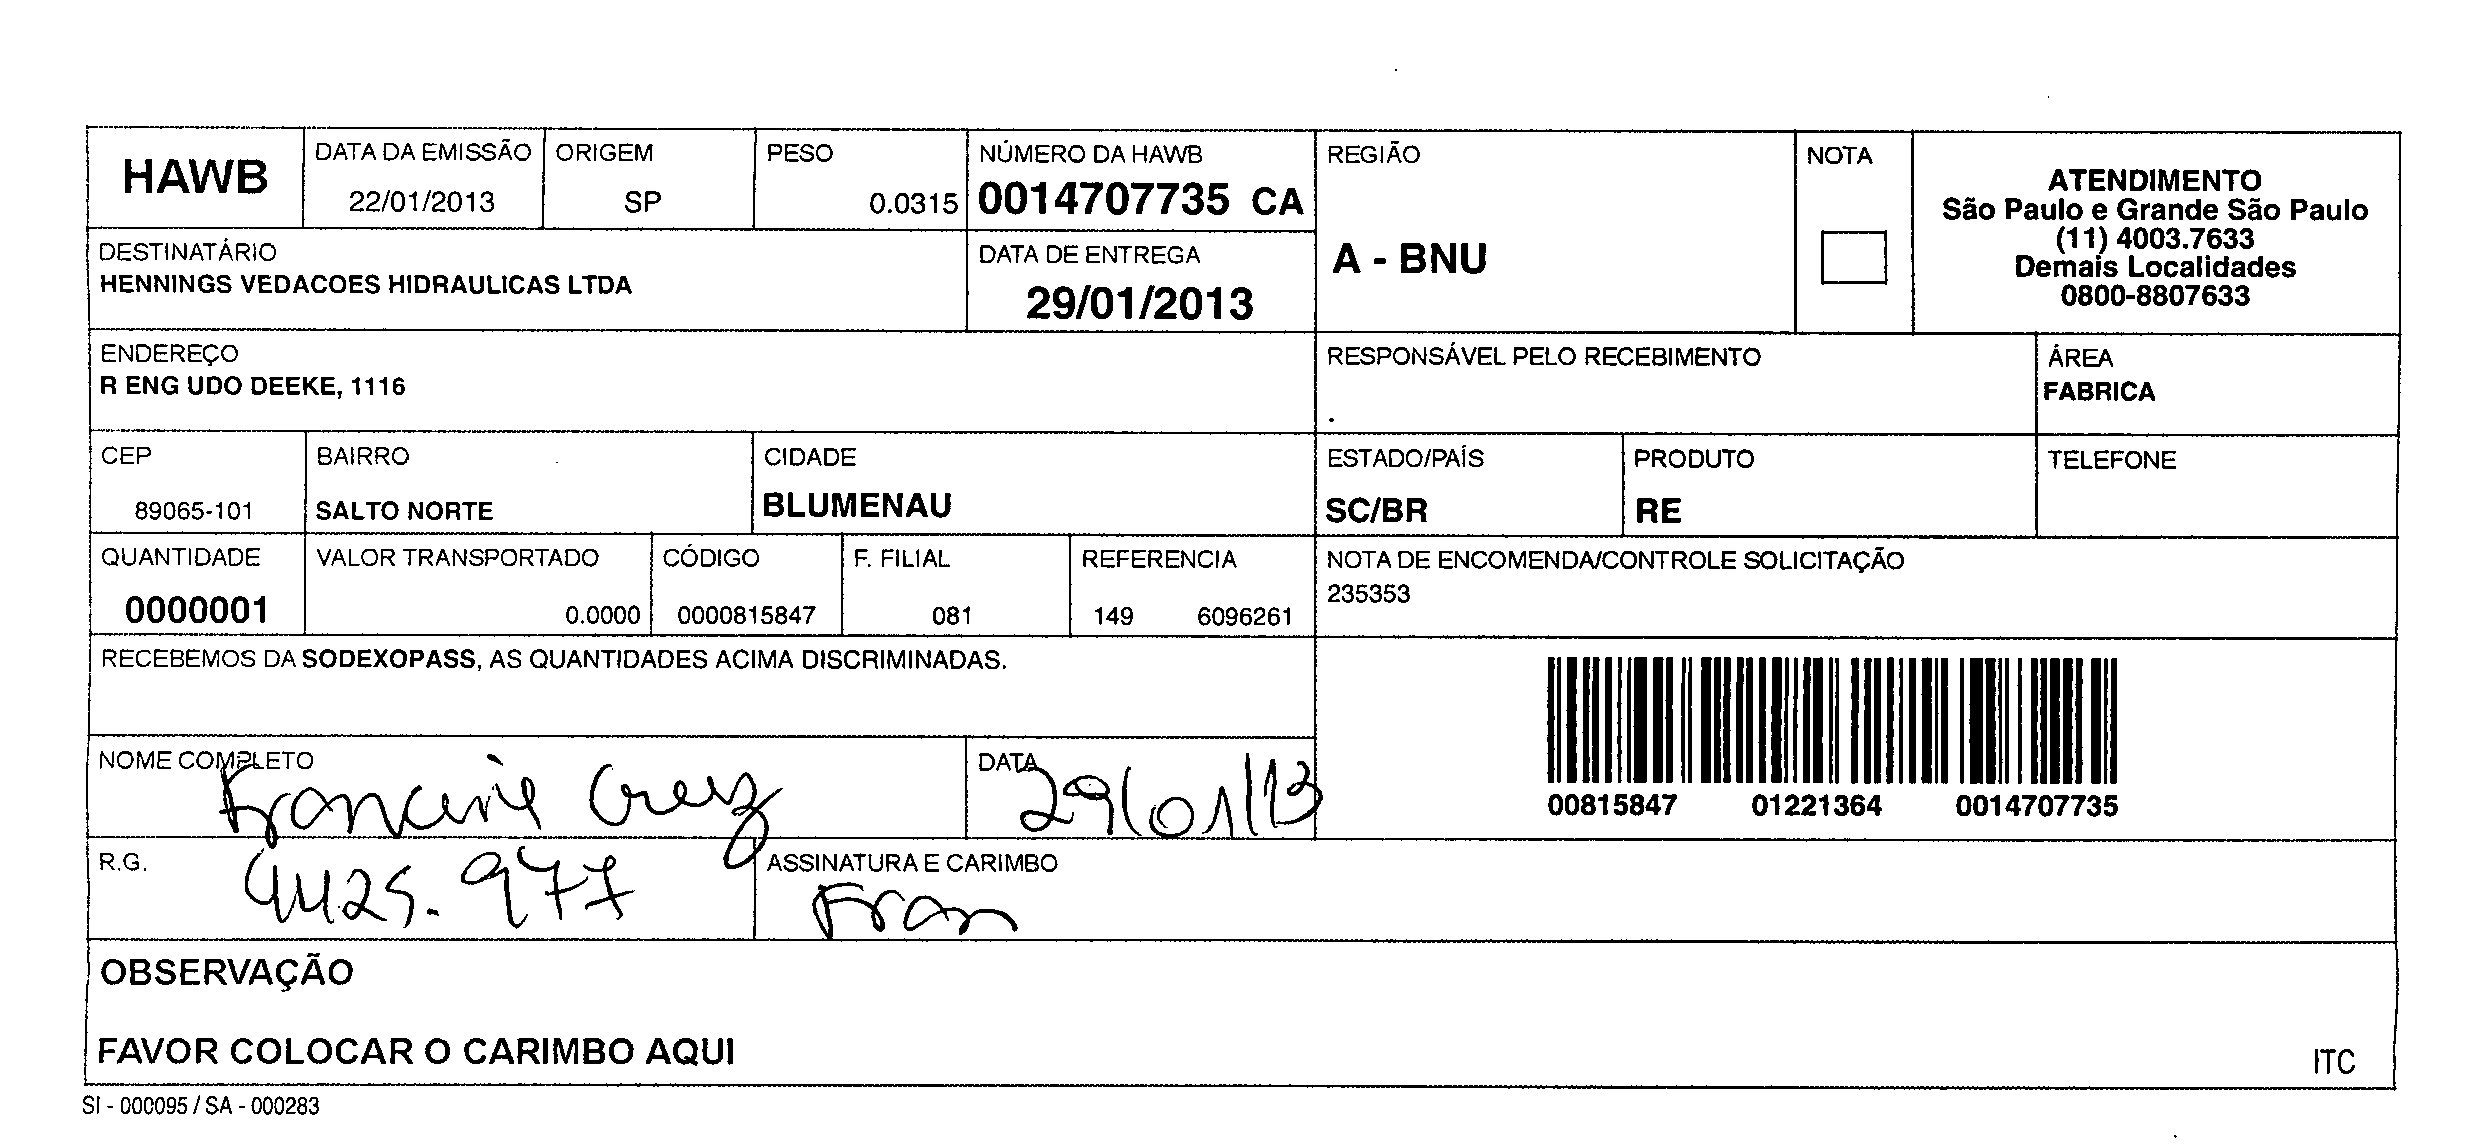 HAWB
DATA DA EMISSÃO
22/01/2013
ORIGEM
SP
PESO
0.0315
NÚMERO DA HAWB
0014707735 CA
REGIÃO
A - BNU
NOTA
ATENDIMENTO
São Paulo e Grande São Paulo
(11) 4003.7633
Demais Localidades
0800-8807633
DESTINATÁRIO
HENNINGS VEDACOES HIDRAULICAS LTDA
DATA DE ENTREGA
29/01/2013
ENDEREÇO
R ENG UDO DEEKE, 1116
RESPONSÁVEL PELO RECEBIMENTO
.
ÁREA
FABRICA
CEP
89065-101
BAIRRO
SALTO NORTE
CIDADE
BLUMENAU
ESTADO/PAÍS
SC/BR
PRODUTO
RE
TELEFONE
QUANTIDADE
0000001
VALOR TRANSPORTADO
0.0000
CÓDIGO
0000815847
F. FILIAL
081
REFERENCIA
149 6096261
NOTA DE ENCOMENDA/CONTROLE SOLICITAÇÃO
235353
RECEBEMOS DA SODEXOPASS, AS QUANTIDADES ACIMA DISCRIMINADAS.
00815847 01221364 0014707735
NOME COMPLETO
DATA
29/01/13
R.G.
4425.977
ASSINATURA E CARIMBO
Fran
OBSERVAÇÃO
FAVOR COLOCAR O CARIMBO AQUI
ITC
SI - 000095 / SA - 000283